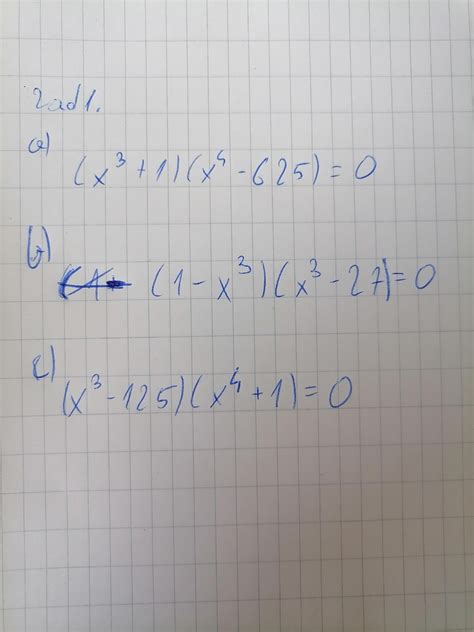 Zad1.
a)
(x³+1)(x⁴-625)=0
b)
(1-x³)(x³-27)=0
c)
(x³-125)(x⁴+1)=0